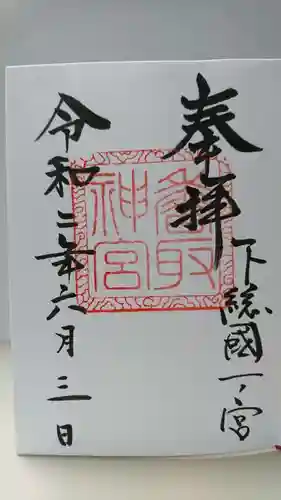 奉拝
下総國一ノ宮
香取神宮
令和二年六月三日